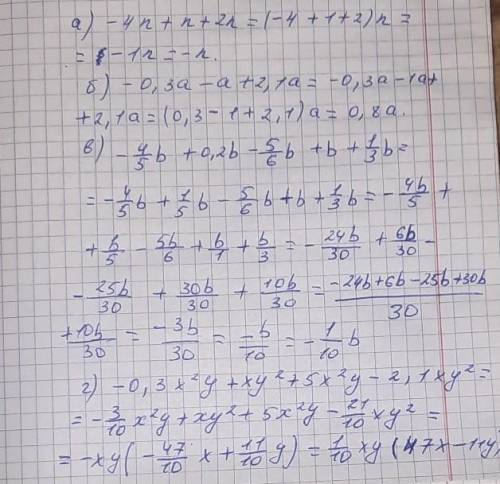 а) -4n + n + 2n = (-4 + 1 + 2) n =
= -1n = -n.
б) -0,3a - a + 2,1a = -0,3a - 1a +
+ 2,1a = (0,3 - 1 + 2,1) a = 0,8a.
в) -4/5 b + 0,2b - 5/6 b + b + 1/3 b =
= -4/5 b + 1/5 b - 5/6 b + b + 1/3 b = -4b/5 +
+ b/5 - 5b/6 + b/1 + b/3 = -24b/30 + 6b/30 -
- 25b/30 + 30b/30 + 10b/30 = -24b + 6b - 25b + 30b / 30
+10b/30 = -3b/30 = -b/10 = -1/10 b
г) -0,3x²y + xy² + 5x²y - 2,1xy² =
= -3/10 x²y + xy² + 5x²y - 21/10 xy² =
= -xy(-47/10 x + 11/10 y) = 1/10 xy (47x - 11y)